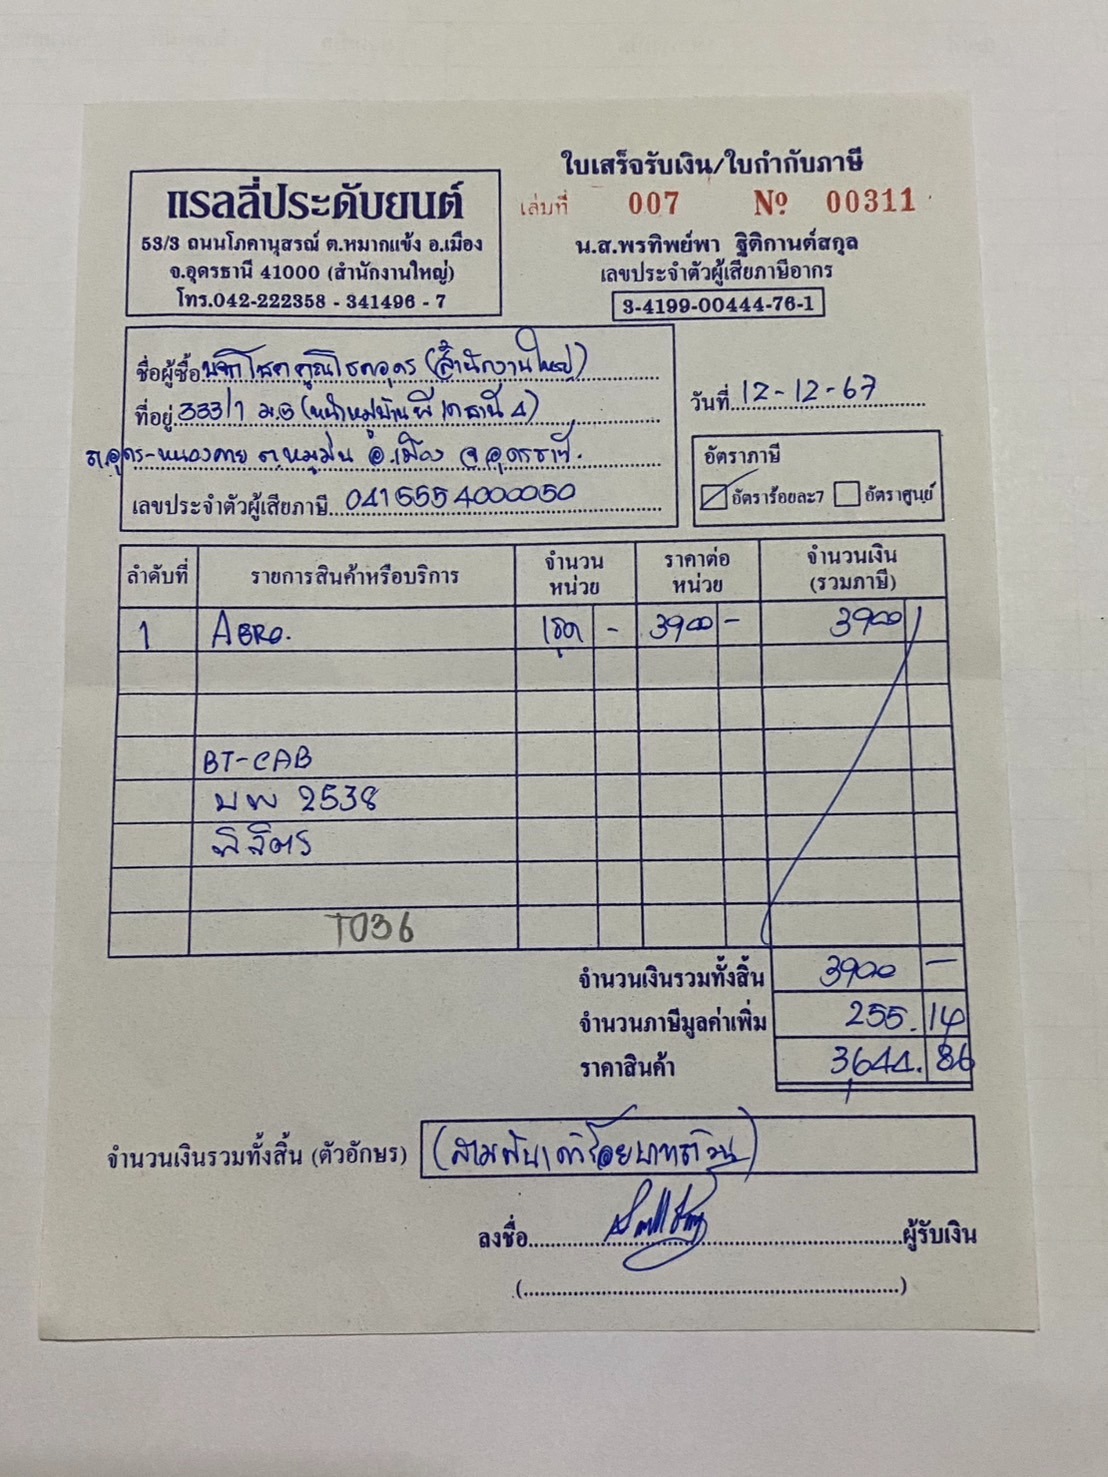 ใบเสร็จรับเงิน/ใบกำกับภาษี
แรลลี่ประดับยนต์
53/3 ถนนโภคานุสรณ์ ต.หมากแข้ง อ.เมือง
จ.อุดรธานี 41000 (สำนักงานใหญ่)
โทร.042-222358 - 341496 - 7
เล่มที่ 007 № 00311
น.ส.พรทิพย์พา ฐิติกานต์สกุล
เลขประจำตัวผู้เสียภาษีอากร
3-4199-00444-76-1
ชื่อผู้ซื้อ บจก โชคคูณโชคอุดร (สำนักงานใหญ่)
ที่อยู่ 333/1 ม.6 (หน้าหมู่บ้านพี 4)
ถ.อุดร-หนองคาย ต.หมูม่น อ.เมือง จ.อุดรธานี.
เลขประจำตัวผู้เสียภาษี 0415554000050
วันที่ 12-12-67
อัตราภาษี
อัตราร้อยละ7 อัตราศูนย์
ลำดับที่ รายการสินค้าหรือบริการ จำนวนหน่วย ราคาต่อหน่วย จำนวนเงิน (รวมภาษี)
1 ABRO. 1ชุด - 3900 - 3900
BT-CAB
บพ 2538
พิจิตร
T036
จำนวนเงินรวมทั้งสิ้น 3900 -
จำนวนภาษีมูลค่าเพิ่ม 255. 14
ราคาสินค้า 3,644. 86
จำนวนเงินรวมทั้งสิ้น (ตัวอักษร) (สามพันเก้าร้อยบาทถ้วน)
ลงชื่อ ผู้รับเงิน
(..........)